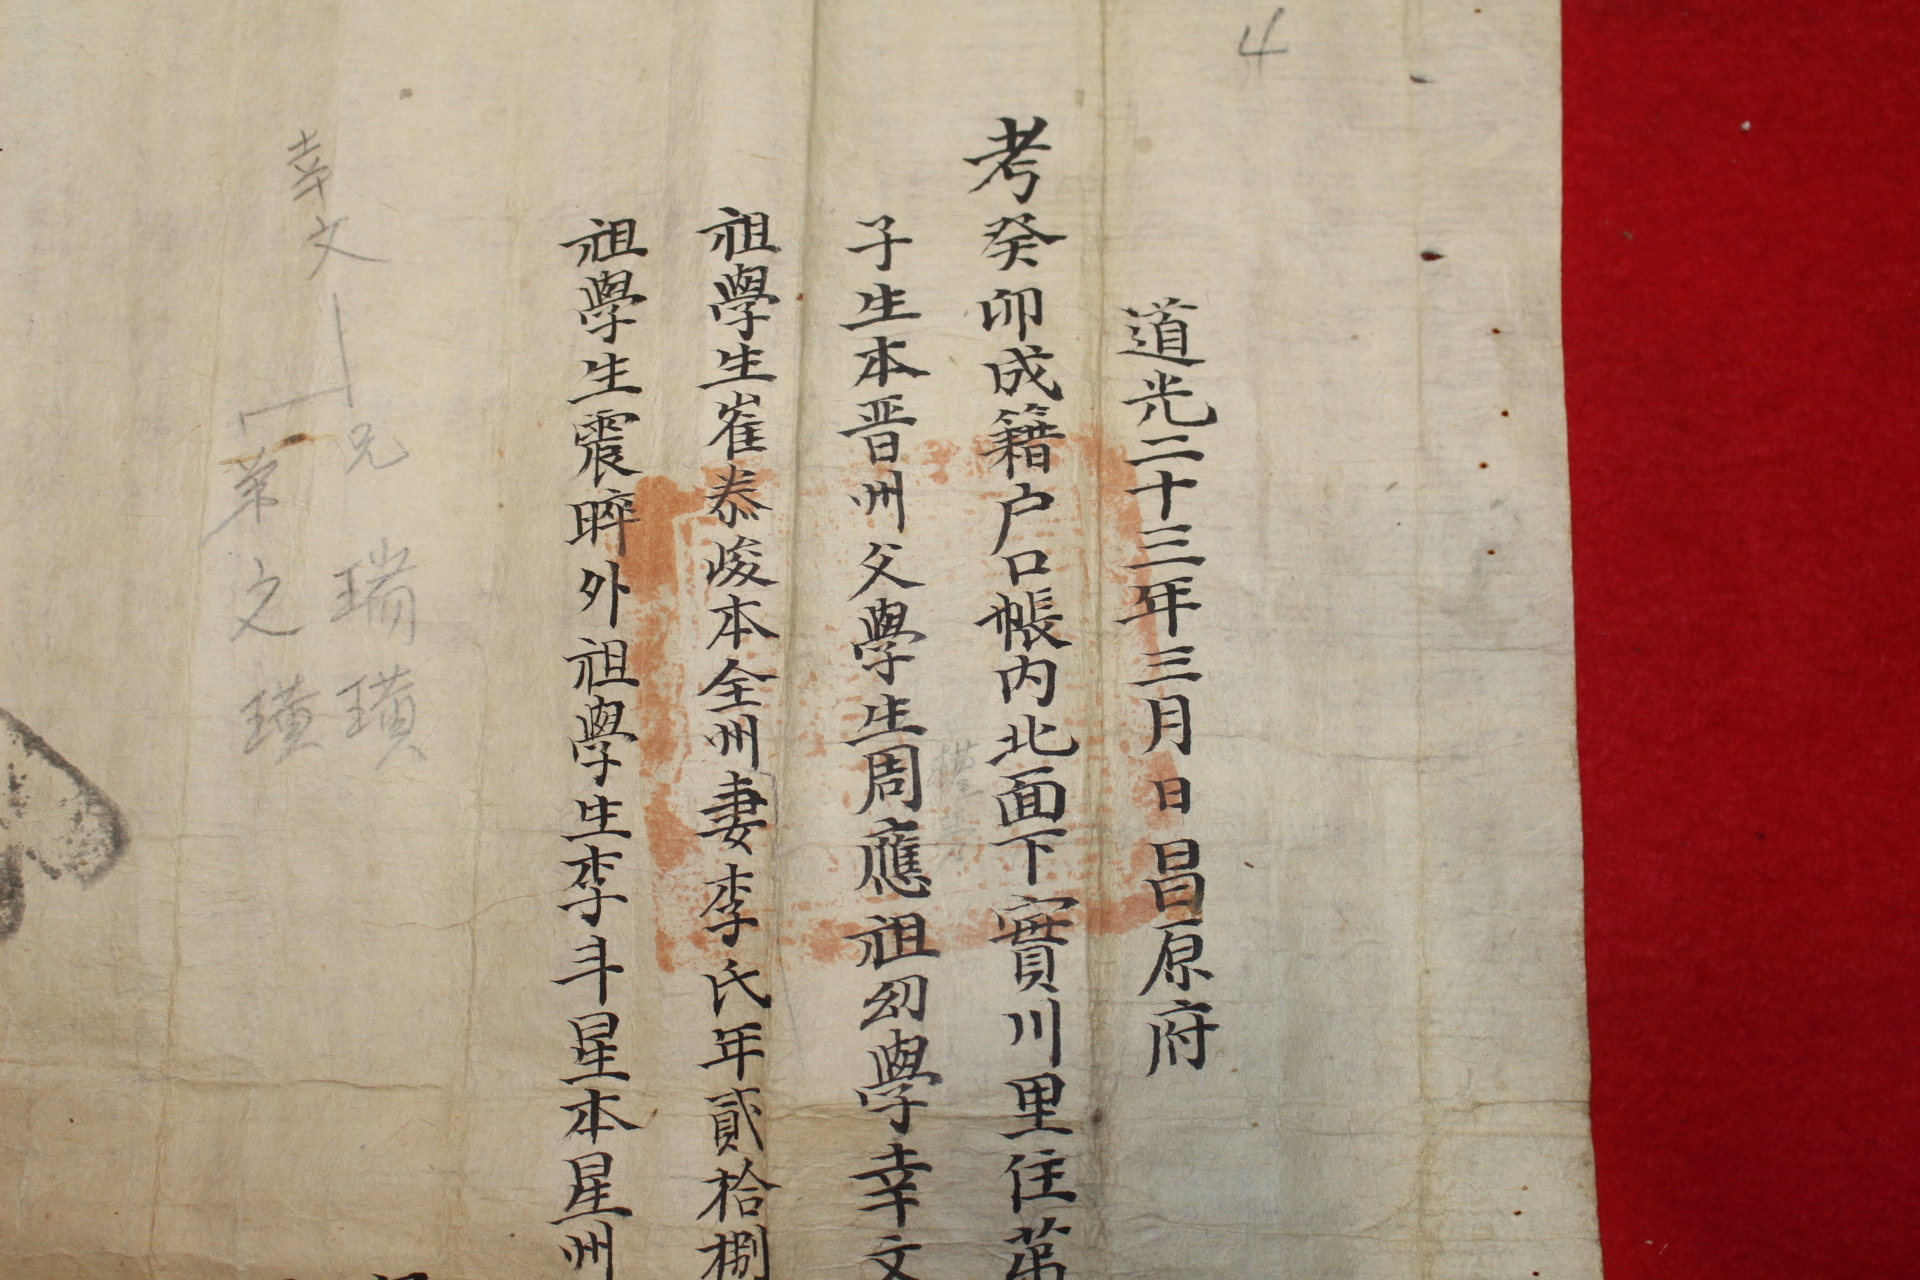 4
道光二十三年三月日昌原府
考癸卯成籍户口帳内北面下實川里住第
子生本晋州父學生周應祖幼學幸文
祖學生崔泰峻本全州妻李氏年貳拾捌
祖學生震晬外祖學生李斗星本星州
幸文
兄 瑞璜
弟 之璜